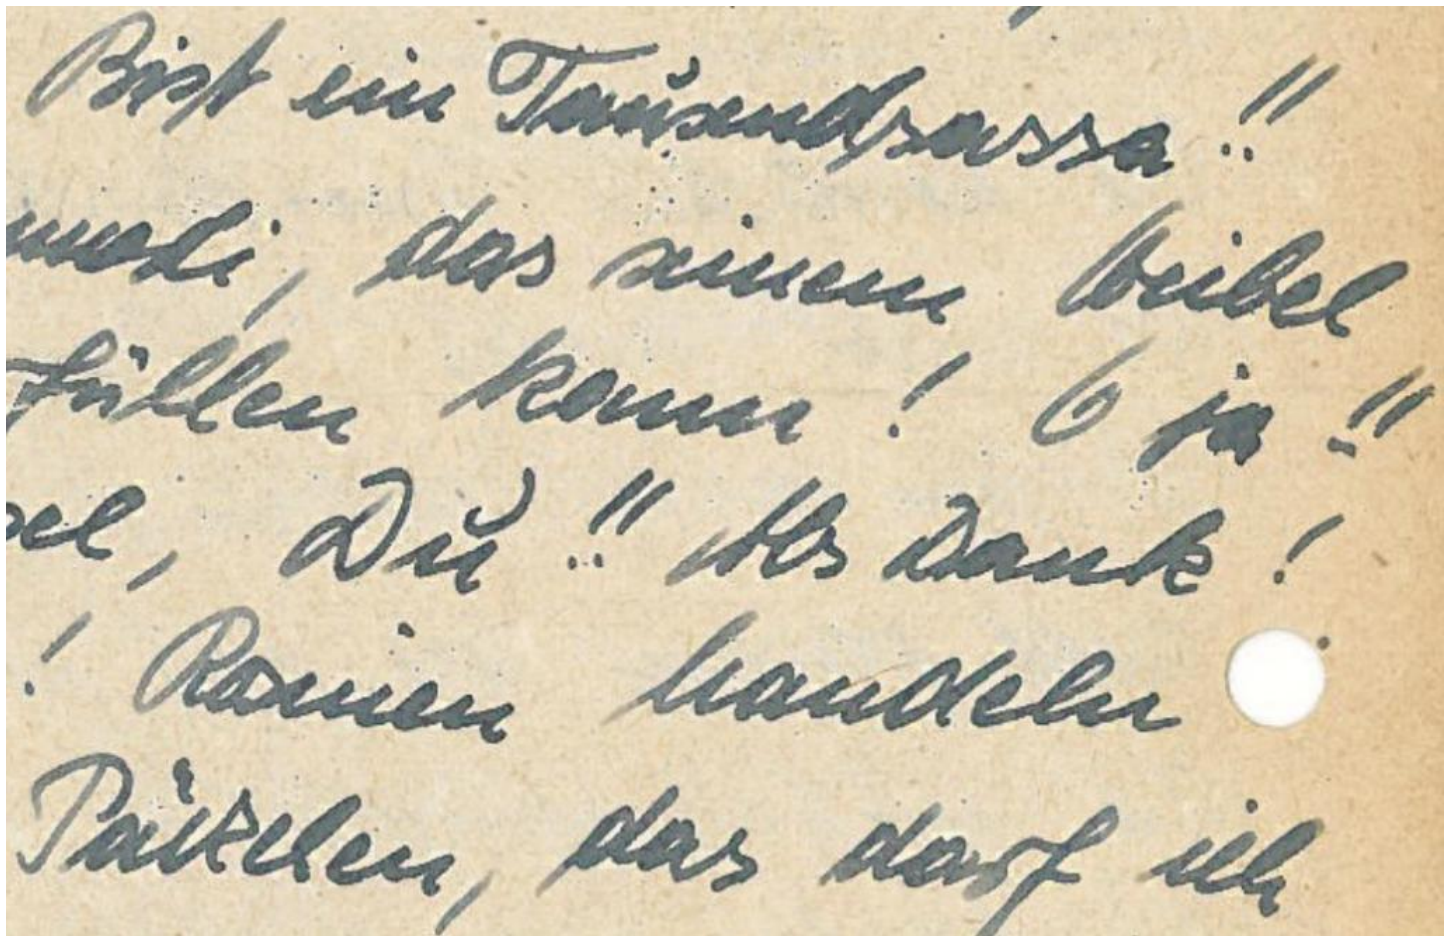 Bist ein Tausendsassa!!
das seinem Weibel
füllen kann! O ja!!
Du!! Als Dank!
! Ramen handeln
Päckchen, das darf ich